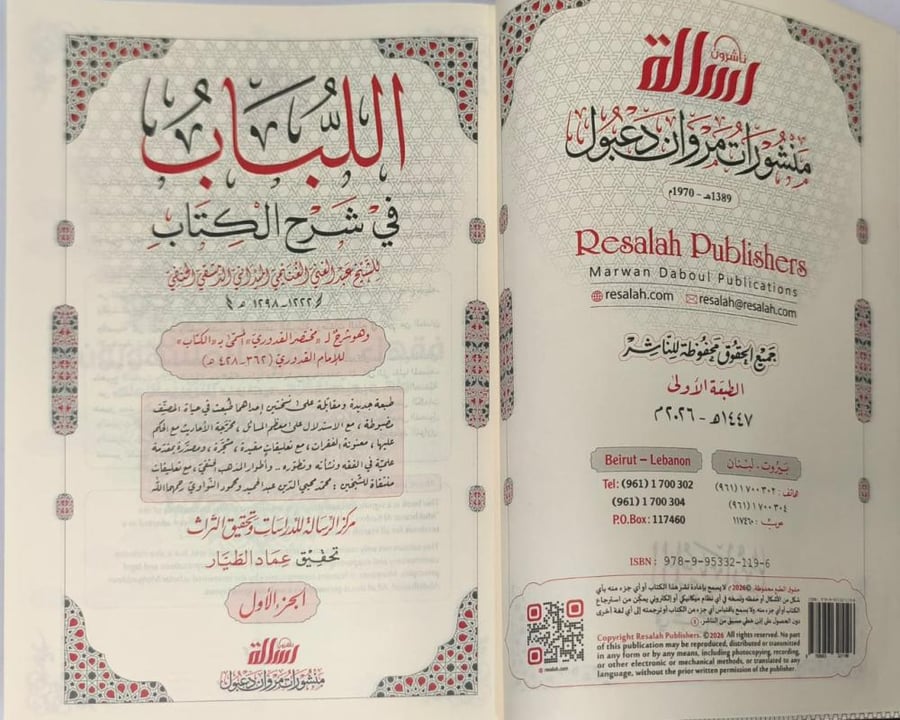 اللُّبَابُ
فِي شَرْحِ الْكِتَابِ
للشيخ عبد الغني الغنيمي الميداني الدمشقي الحنفي
١٢٢٢-١٢٩٨ هـ
وهو شرح لـ «مختصر القدوري» المسمى بـ «الكتاب»
للإمام القدوري (٣٦٢-٤٢٨ هـ)
طبعة جديدة ومقابلة على نسختين إحداهما طُبعت في حياة المصنِّف
مضبوطة، مع الاستدلال على معظم المسائل، مخرَّجة الأحاديث مع الحكم
عليها، معنونة الفقرات، مع تعليقات مفيدة، مشجَّرة، ومصدَّرة بمقدمة
علمية في الفقه ونشأته وتطوّره.. وأطوار المذهب الحنفي، مع تعليقات
منتقاة للشيخين: محمد محيي الدين عبد الحميد ومحمود النواوي رحمهما الله
مركز الرسالة للدراسات وتحقيق التراث
تحقيق عماد الطيّار
الجزء الأول
رسالة ناشرون
منشورات مروان دعبول
رسالة ناشرون
مَنشورَات مَروَان دَعبُول
1389هـ - 1970م
Resalah Publishers
Marwan Daboul Publications
resalah.com resalah@resalah.com
جميع الحقوق محفوظة للناشر
الطبعة الأولى
١٤٤٧هـ - ٢٠٢٦م
Beirut – Lebanon
Tel: (961) 1 700 302
(961) 1 700 304
P.O.Box: 117460
بيروت - لبنان
هاتف: ٧٠٠٣٠٢ ١ (٩٦١)
٧٠٠٣٠٤ ١ (٩٦١)
ص.ب: ١١٧٤٦٠
ISBN: 978-9-95332-119-6
حقوق الطبع محفوظة ©2026. لا يسمح بإعادة نشر هذا الكتاب أو أي جزء منه بأي
شكل من الأشكال أو حفظه ونسخه في أي نظام ميكانيكي أو إلكتروني يمكّن من استرجاع
الكتاب أو أي جزء منه. ولا يسمح باقتباس أي جزء من الكتاب أو ترجمته إلى أي لغة أخرى
دون الحصول على إذن خطي مسبق من الناشر.
Copyright Resalah Publishers. ©2026 All rights reserved. No part
of this publication may be reproduced, distributed or transmitted
in any form or by any means, including photocopying, recording,
or other electronic or mechanical methods, or translated to any
language, without the prior written permission of the publisher.